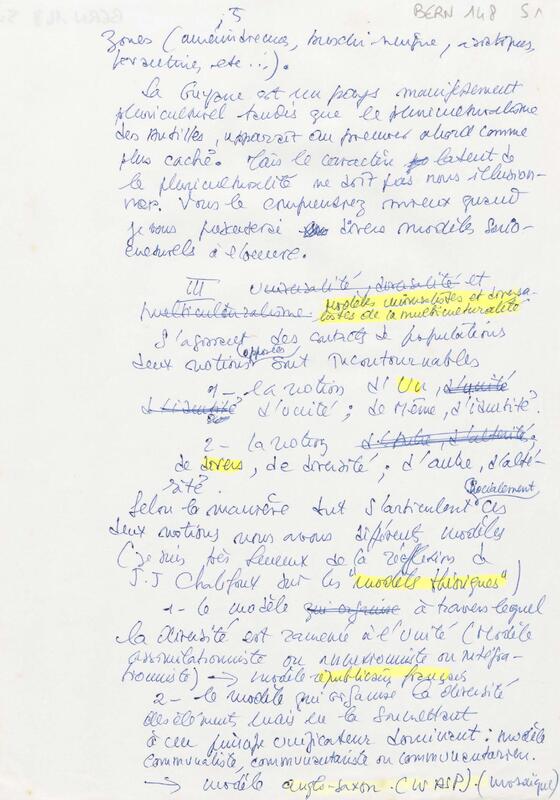 5
BERN 148 S1
zones (amérindiennes, buschi-nengue, asiatiques,
brésiliennes, etc...).
La Guyane est un pays manifestement
pluriculturel tandis que le pluriculturalisme
des Antilles, apparaît au premier abord comme
plus caché. Mais le caractère latent de
la pluriculturalité ne doit pas nous illusion-
ner. Vous le comprendrez mieux quand
je vous présenterai divers modèles socio-
culturels à l'oeuvre.
III universalité, diversalité et
multiculturalisme modèles universalistes et diversa-
listes de la multiculturalité
S'agissant des contacts de populations
deux notions opposées sont incontournables
1 - la notion d'Un, d'unité
d'identité d'unité ; de même, d'identité.
2 - la notion d'Autre, d'altérité,
de divers, de diversité ; d'autre, d'alté-
rité.
Selon la manière dont s'articulent socialement ces
deux notions nous avons différents modèles
(je suis très heureux de la réflexion de
J.J Chalifoux sur les "modèles théoriques")
1 - le modèle qui organise à travers lequel
la diversité est ramenée à l'Unité (modèle
assimilationniste ou annexionniste ou intégra-
tionniste) → modèle républicain français
2 - le modèle qui organise la diversité
des éléments mais en la soumettant
à un principe unificateur dominant : modèle
communaliste, communautariste ou communautarien.
→ modèle anglo-saxon (WASP) (mosaïque)